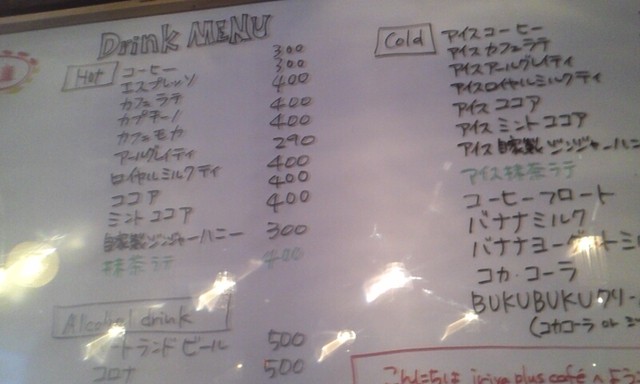 Drink MENU
Hot
コーヒー 300
エスプレッソ 300
カフェラテ 400
カプチーノ 400
カフェモカ 400
アールグレイティ 290
ロイヤルミルクティ 400
ココア 400
ミントココア 400
自家製ジンジャーハニー 300
抹茶ラテ 400
Alcohol drink
ートランドビール 500
コロナ 500
Cold
アイスコーヒー
アイスカフェラテ
アイスアールグレイティ
アイスロイヤルミルクティ
アイスココア
アイスミントココア
アイス自家製ジンジャーハニ
アイス抹茶ラテ
コーヒーフロート
バナナミルク
バナナヨーグルトミ
コカ・コーラ
BUKUBUKUクリー
(コカコーラ or
こんにちは iriya plus caféへよう